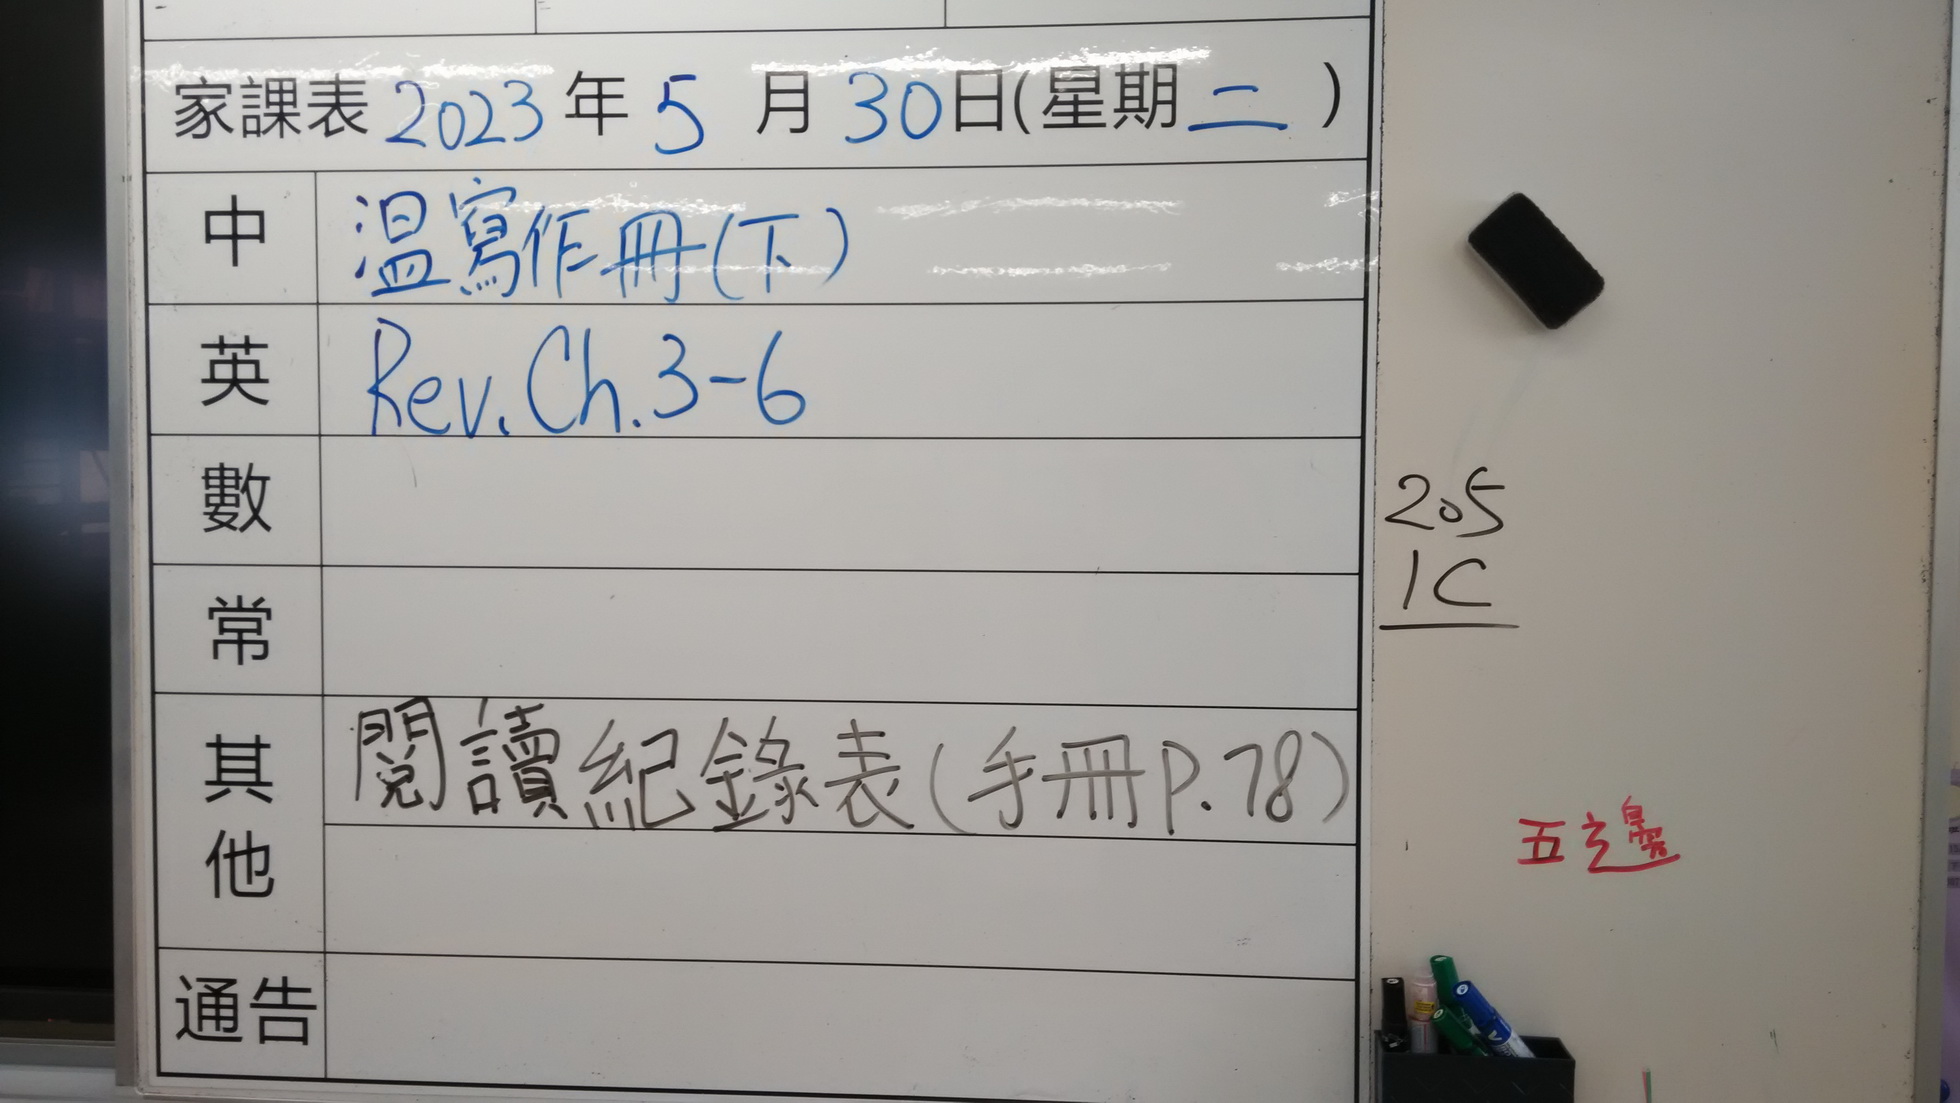 家課表 2023 年 5 月 30 日(星期二)
中 温寫作冊(下)
英 Rev. Ch. 3-6
數
常
其他 閱讀紀錄表(手冊P.78)
通告
205
1C
五之邊